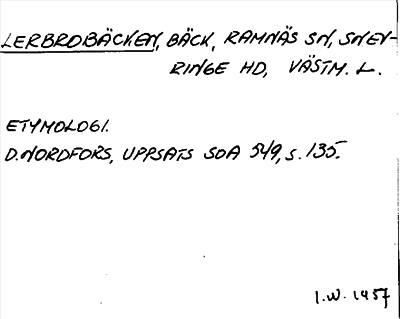 LERBROBÄCKEN, BÄCK, RAMNÄS SN, SNEV-
RINGE HD, VÄSTM. L.
ETYMOLOGI.
D. NORDFORS, UPPSATS SOA 549, S. 135.
I.W. 1957